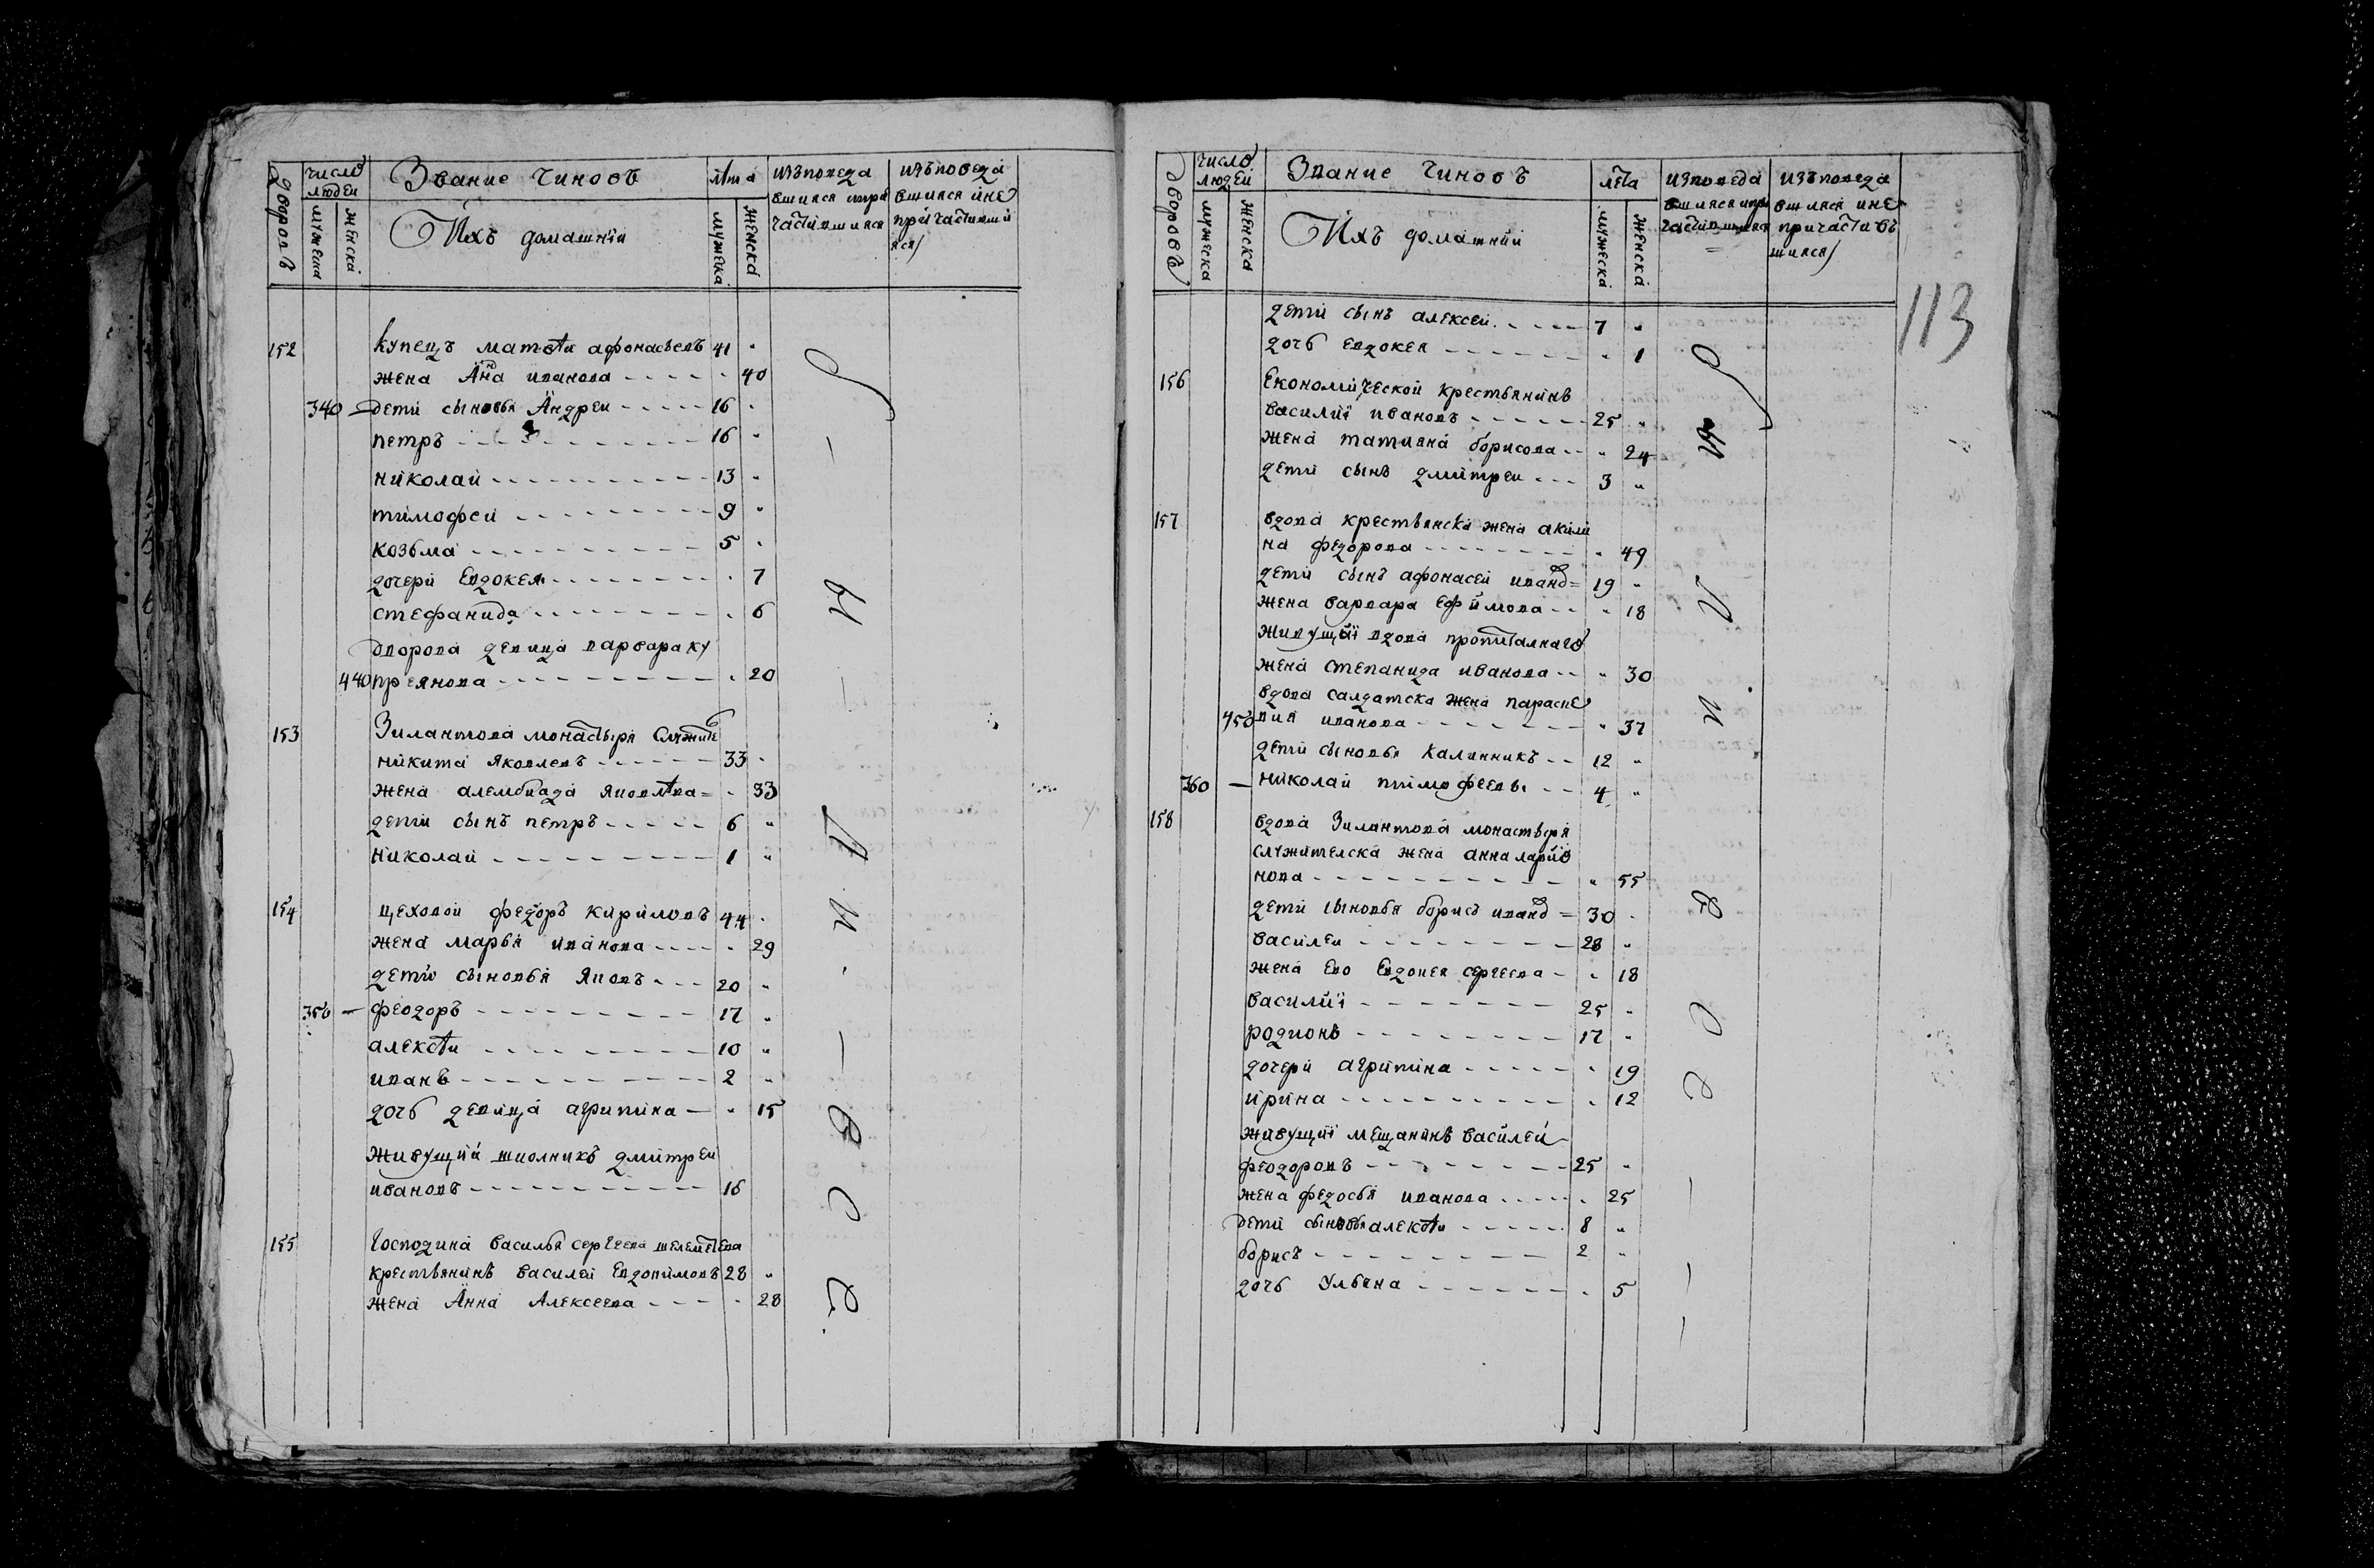 дворовъ
число людей
мужеска
женска
Звание чиновъ
Ихъ домашнїи
лѣта
мужеска
женска
изъповеда
вшияся ипри
частившияся
изъповеда
вшияся ине
причастивши
яся
152 купецъ матѳѣи афонасьевъ 41
жена Анна иванова 40
340 дети сыновья Андреи 16
петръ 16
николаи 13
тимофеи 9
козьма 5
дочери Евдокея 7
стефанида 6
дворова девица варвара ку
440 преянова 20
153 Зилантова монастыря
никита Яковлевъ 33
жена Яковлѣва 33
дети сынъ петръ 6
николаи 1
154 цеховои федоръ кириловъ 44
жена марья иванова 29
дети сыновья Яковъ 20
350 феодоръ 17
алексѣи 10
иванъ 2
дочь девица агрипина 15
живущии школникъ дмитреи
ивановъ 16
155 Господина василья сергеева шелеметева
крестьянинъ василеи Евдокимовъ 28
жена Анна Алексеева 28
113
дворовъ
число людей
мужеска
женска
Звание чиновъ
Ихъ домашнии
лѣта
мужеска
женска
изповеда
вшияся ипри
частившияся
изъповеда
вшияся ине
причастивъ
шияся
дети сынъ алексеи 7
дочь Евдокея 1
156 Економическои крестьянинъ
василиї ивановъ 25
жена татияна борисова 24
дети сынъ дмитреи 3
157 вдова крестьянска жена акили
на федорова 49
дети сынъ афонасеи иванов 19
жена варвара Ефимова 18
живущиї вдова пропиталнаго
жена степанида иванова 30
вдова салдатска жена параске
450 вия иванова 37
дети сыновья калинникъ 12
360 николаи тимофеевы 4
158 вдова Зилантова монастыря
служителска жена анна ларио
нова 55
дети сыновья борисъ иванов 30
василеи 28
жена Ево Евдокея сергеева 18
василиї 25
родионъ 17
дочери агрипина 19
ирина 12
живущиї мещанинъ василеи
феодоровъ 25
жена федосья иванова 25
дети сыновья алексѣи 8
борисъ 2
дочь Ульяна 5